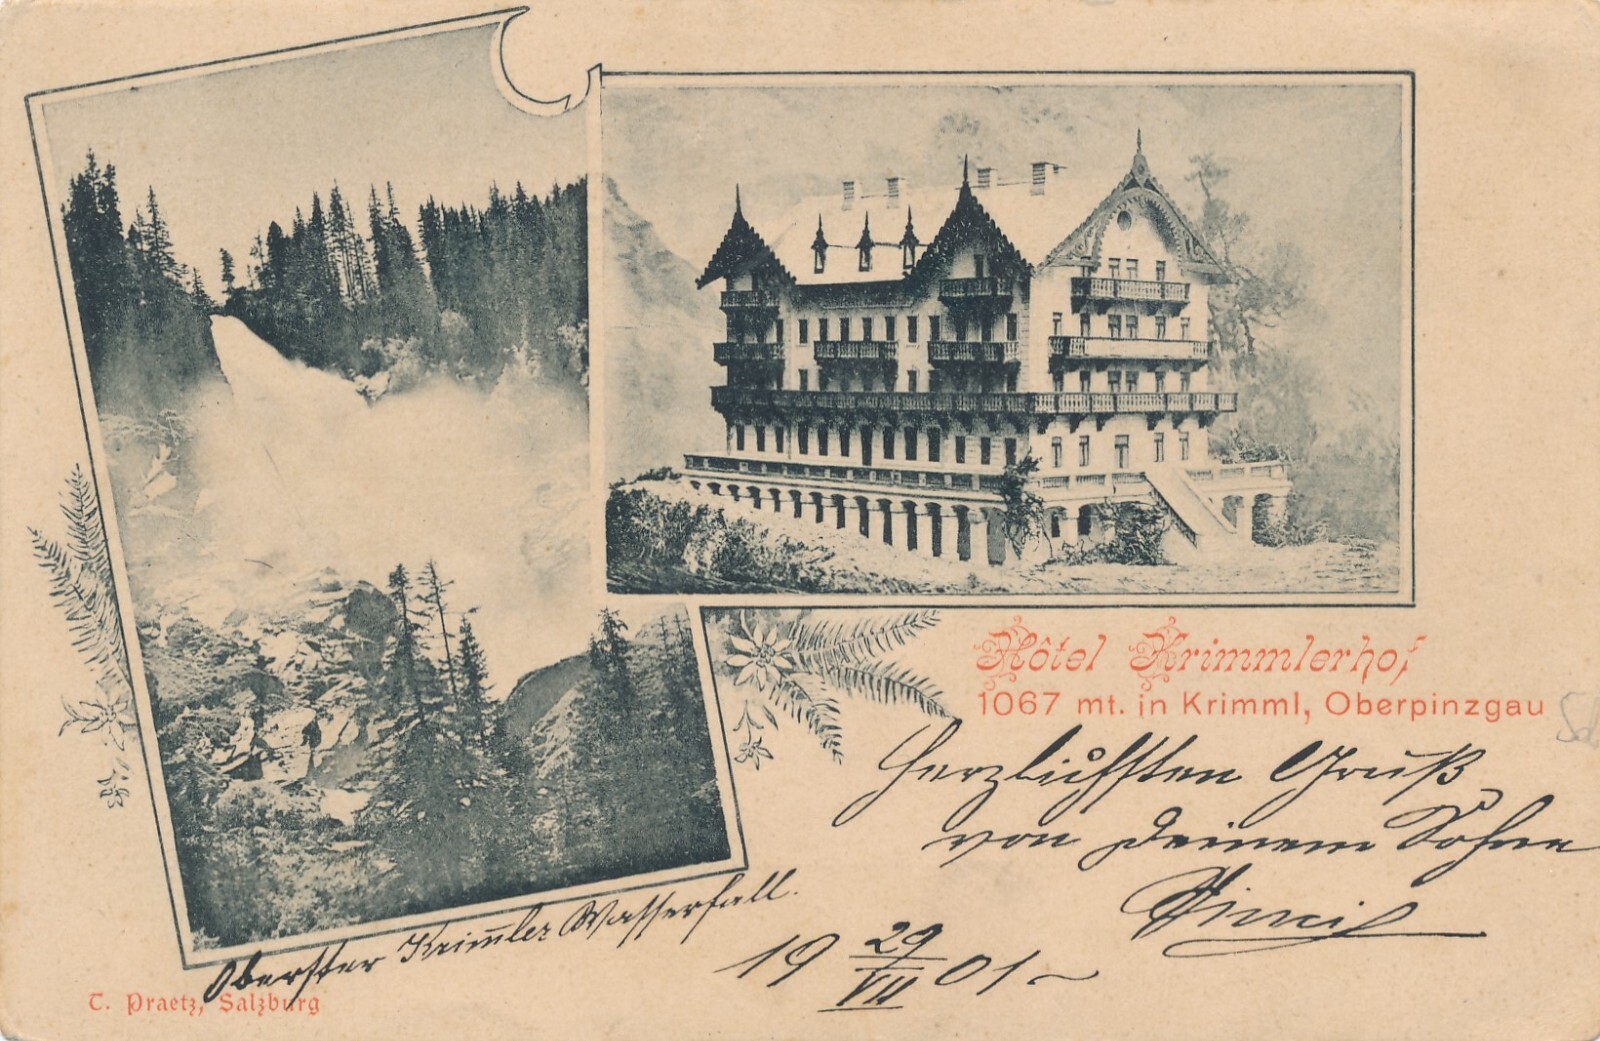 Hôtel Krimmlerhof
1067 mt. in Krimml, Oberpinzgau
Herzlichsten Gruß
von Deinem Sohne
Oberster Krim̅ler Wasserfall.
19 29/VII 01
T. Praetz, Salzburg